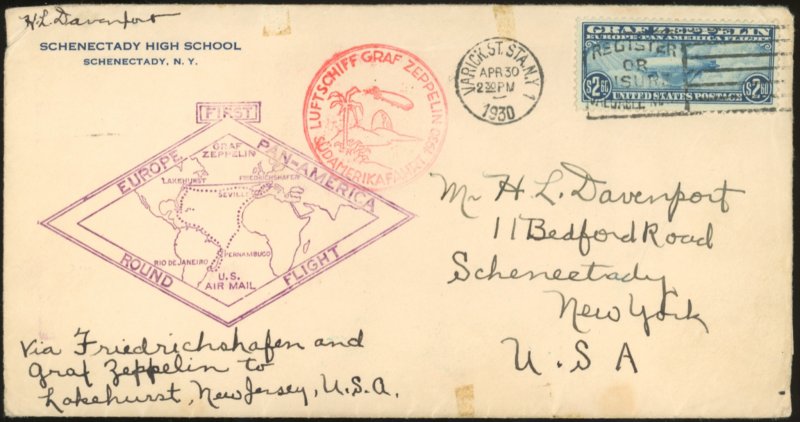 H.L. Davenport
SCHENECTADY HIGH SCHOOL
SCHENECTADY, N. Y.
LUFTSCHIFF GRAF ZEPPELIN
SÜDAMERIKAFAHRT 1930
VARICK ST. STA. N.Y. 1
APR 30
2 PM
1930
GRAF ZEPPELIN
EUROPE-PAN AMERICA FLIGHT
REGISTER
OR
$2.60
$2.60
UNITED STATES POSTAGE
FIRST
EUROPE PAN-AMERICA
GRAF
ZEPPELIN
LAKEHURST FRIEDRICHSHAFEN
SEVILLE
PERNAMBUCO
RIO DE JANEIRO
U.S.
AIR MAIL
ROUND FLIGHT
Mr H. L. Davenport
11 Bedford Road
Schenectady
New York
U.S.A
Via Friedrichshafen and
Graf Zeppelin to
Lakehurst, New Jersey, U.S.A.